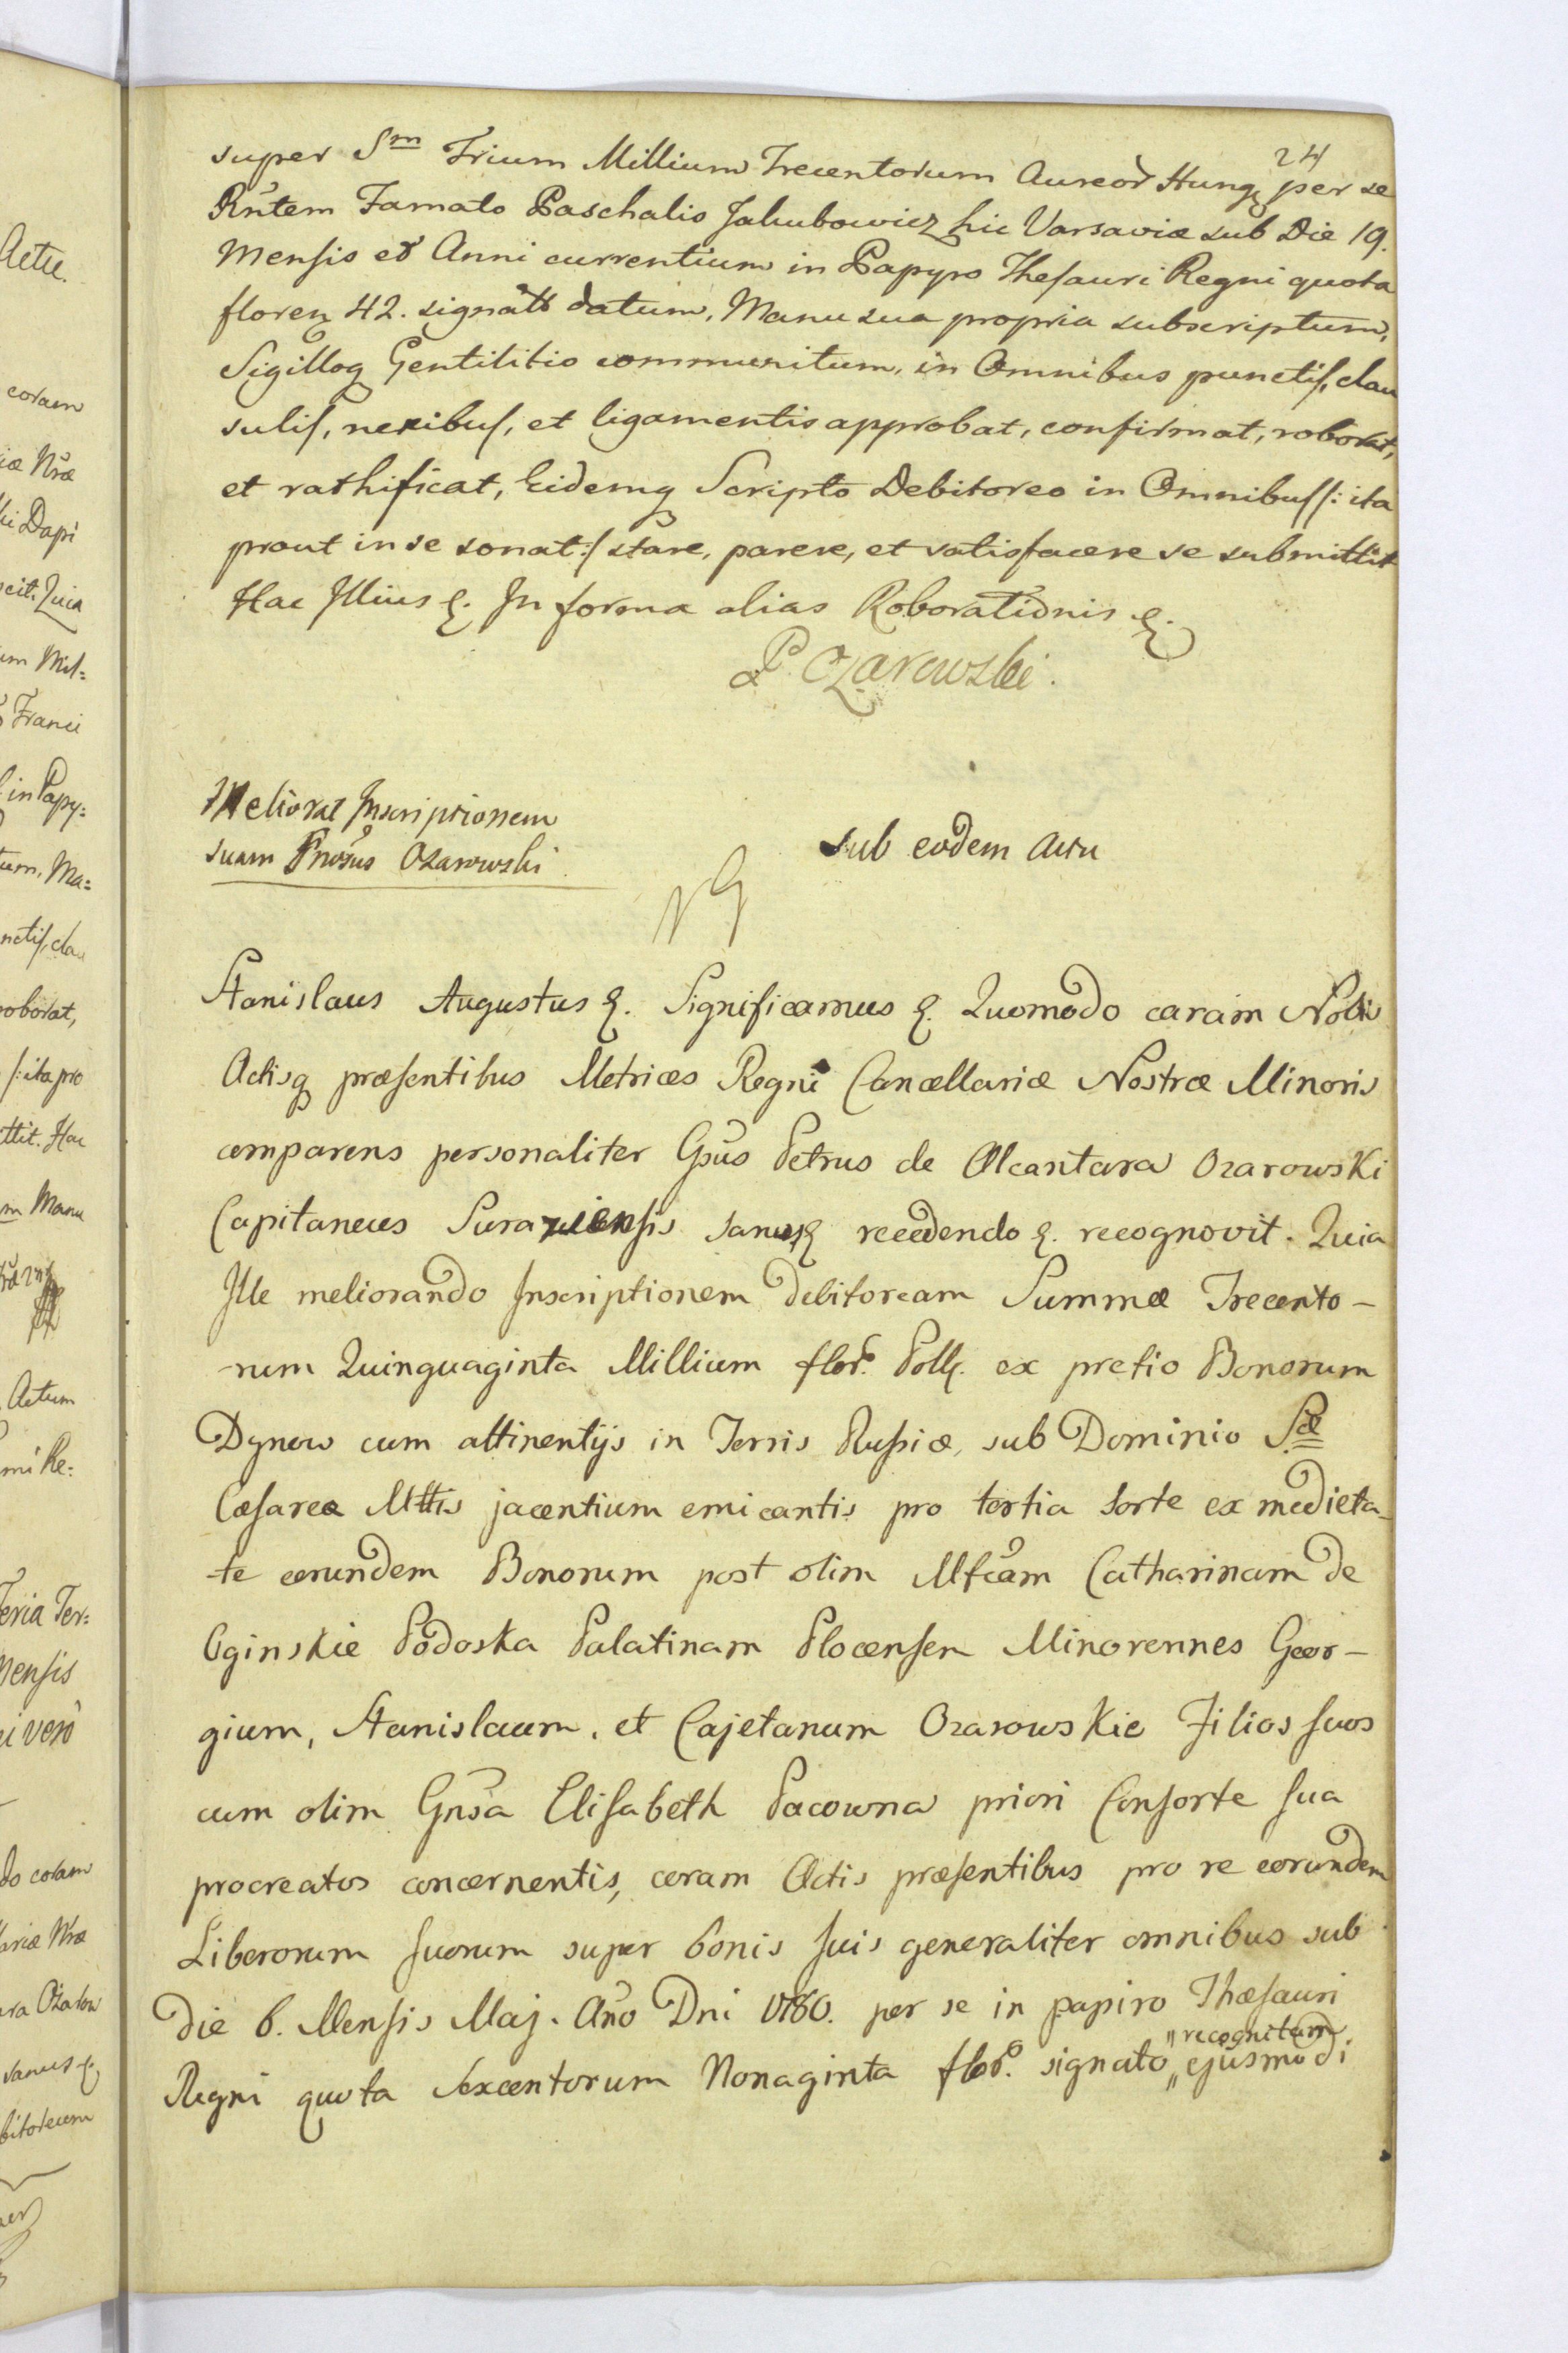 24
super Sm Trium Millium Trecentorum Aureor Hung. per se
Rntem Famato Paschalis Jakubowicz hic Varsaviæ sub Die 19.
Mensis et Anni currentium in Papyro Thesauri Regni quota
floren 42. signatt datum, Manu sua propria subscriptum,
Sigilloq Gentilitio communitum, in Omnibus punctis, clau
sulis, nexibus, et ligamentis approbat, confirmat, roborat,
et rathificat, Eidemq Scripto Debitoreo in Omnibus /: ita
prout in se sonat :/ stare, parere, et satisfacere se submittit
Hac Illius &. In forma alias Roborationis &.
P. Ożarowski.
Meliorat Inscriptionem
suam Gnosus Ozarowski.
sub eodem Actu
Stanislaus Augustus &. Significamus &. Quomodo coram Nobis
Actisq præsentibus Metrices Regni Cancellariæ Nostræ Minoris
comparens personaliter Gsus Petrus de Alcantara Ozarowski
Capitaneus Suraziensis sanus & recedendo &. recognovit. Quia
Ille meliorando Inscriptionem debitoream Summæ Trecento-
-rum Quinquaginta Millium flor. Poll. ex pretio Bonorum
Dynow cum attinentijs in Terris Russiæ, sub Dominio Sæ
Cæsareæ Mttis jacentium emicantis pro tertia sorte ex medieta-
-te eorundem Bonorum post olim Mfcam Catharinam de
Oginskie Podoska Palatinam Plocensem Minorennes Geor-
gium, Stanislaum, et Cajetanum Ozarowskie Filios suos
cum olim Gnsa Elisabeth Pacowna priori Consorte sua
procreatos concernentis, coram Actis præsentibus pro re eorundem
Liberorum suorum super bonis suis generaliter omnibus sub
die 6. Mensis Maj. Ano Dni 1780. per se in papiro Thæsauri
Regni quota Sexcentorum Nonaginta flor. signato „recognitam„ ejusmodi